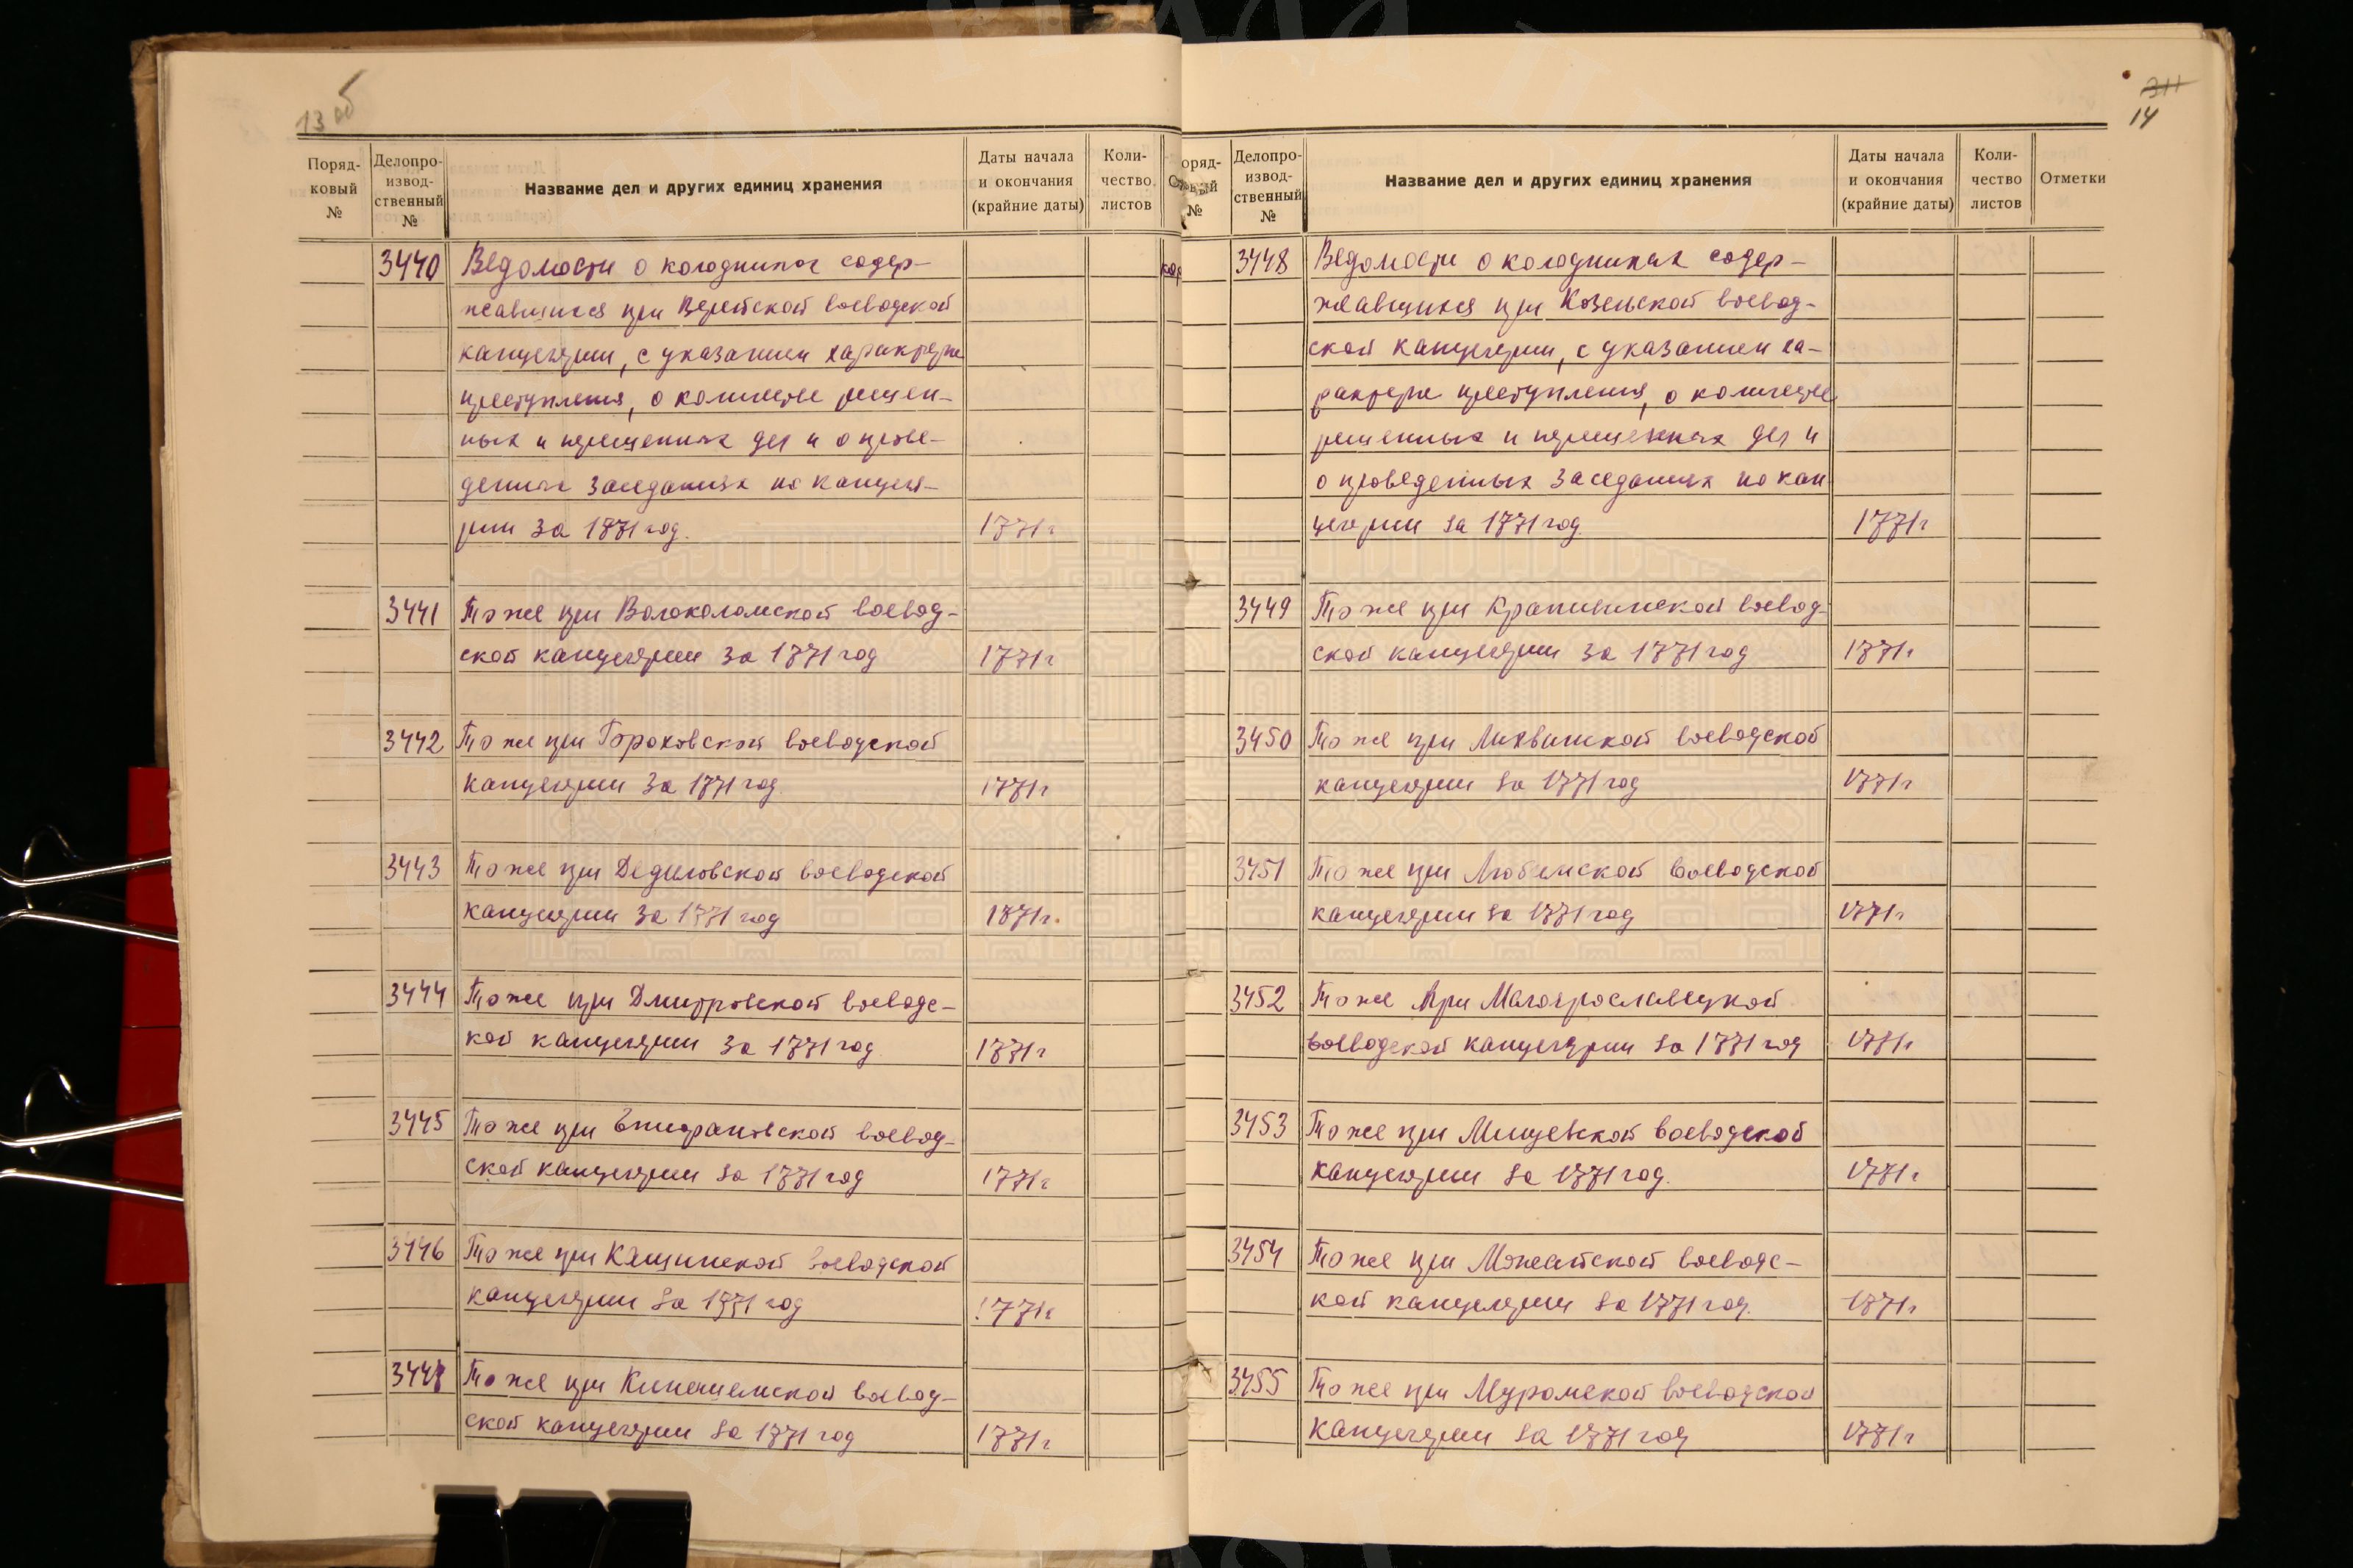 13 об
Поряд-
ковый
№
Делопро-
извод-
ственный
№
Название дел и других единиц хранения
Даты начала
и окончания
(крайние даты)
Коли-
чество
листов
3440 Ведомости о колодниках содер-
жавшихся при Верейской воеводской
канцелярии, с указанием характера
преступления, о количестве решен-
ных и нерешенных дел и о прове-
денных заседаниях по канцеля-
рии за 1771 год. 1771г
3441 То же при Волоколамской воевод-
ской канцелярии за 1771 год 1771г
3442 То же при Гороховской воеводской
канцелярии за 1771 год 1771г
3443 То же при Дедиловской воеводской
канцелярии за 1771 год 1771г.
3444 То же при Дмитровской воеводс-
кой канцелярии за 1771 год 1771г
3445 То же при Епифановской воевод-
ской канцелярии за 1771 год 1771г
3446 То же при Кашинской воеводской
канцелярии за 1771 год 1771г
3447 То же при Кинешемской воевод-
ской канцелярии за 1771 год 1771г
311
14
оряд-
№
Делопро-
извод-
ственный
№
Название дел и других единиц хранения
Даты начала
и окончания
(крайние даты)
Коли-
чество
листов
Отметки
3448 Ведомости о колодниках содер-
жавшихся при Козельской воевод-
ской канцелярии, с указанием ха-
рактера преступления, о количестве
решенных и нерешенных дел и
о проведенных заседаниях по кан
целярии за 1771 год. 1771г
3449 То же при Крапивинской воевод-
ской канцелярии за 1771 год 1771г
3450 То же при Лихвинской воеводской
канцелярии за 1771 год 1771г
3451 То же при Любимской воеводской
канцелярии за 1771 год 1771г
3452 То же при Малоярославецкой
воеводской канцелярии за 1771 год 1771г
3453 То же при Мещевской воеводской
канцелярии за 1771 год. 1771г
3454 То же при Можайской воеводс-
кой канцелярии за 1771 год. 1771г
3455 То же при Муромской воеводской
канцелярии за 1771 год 1771г